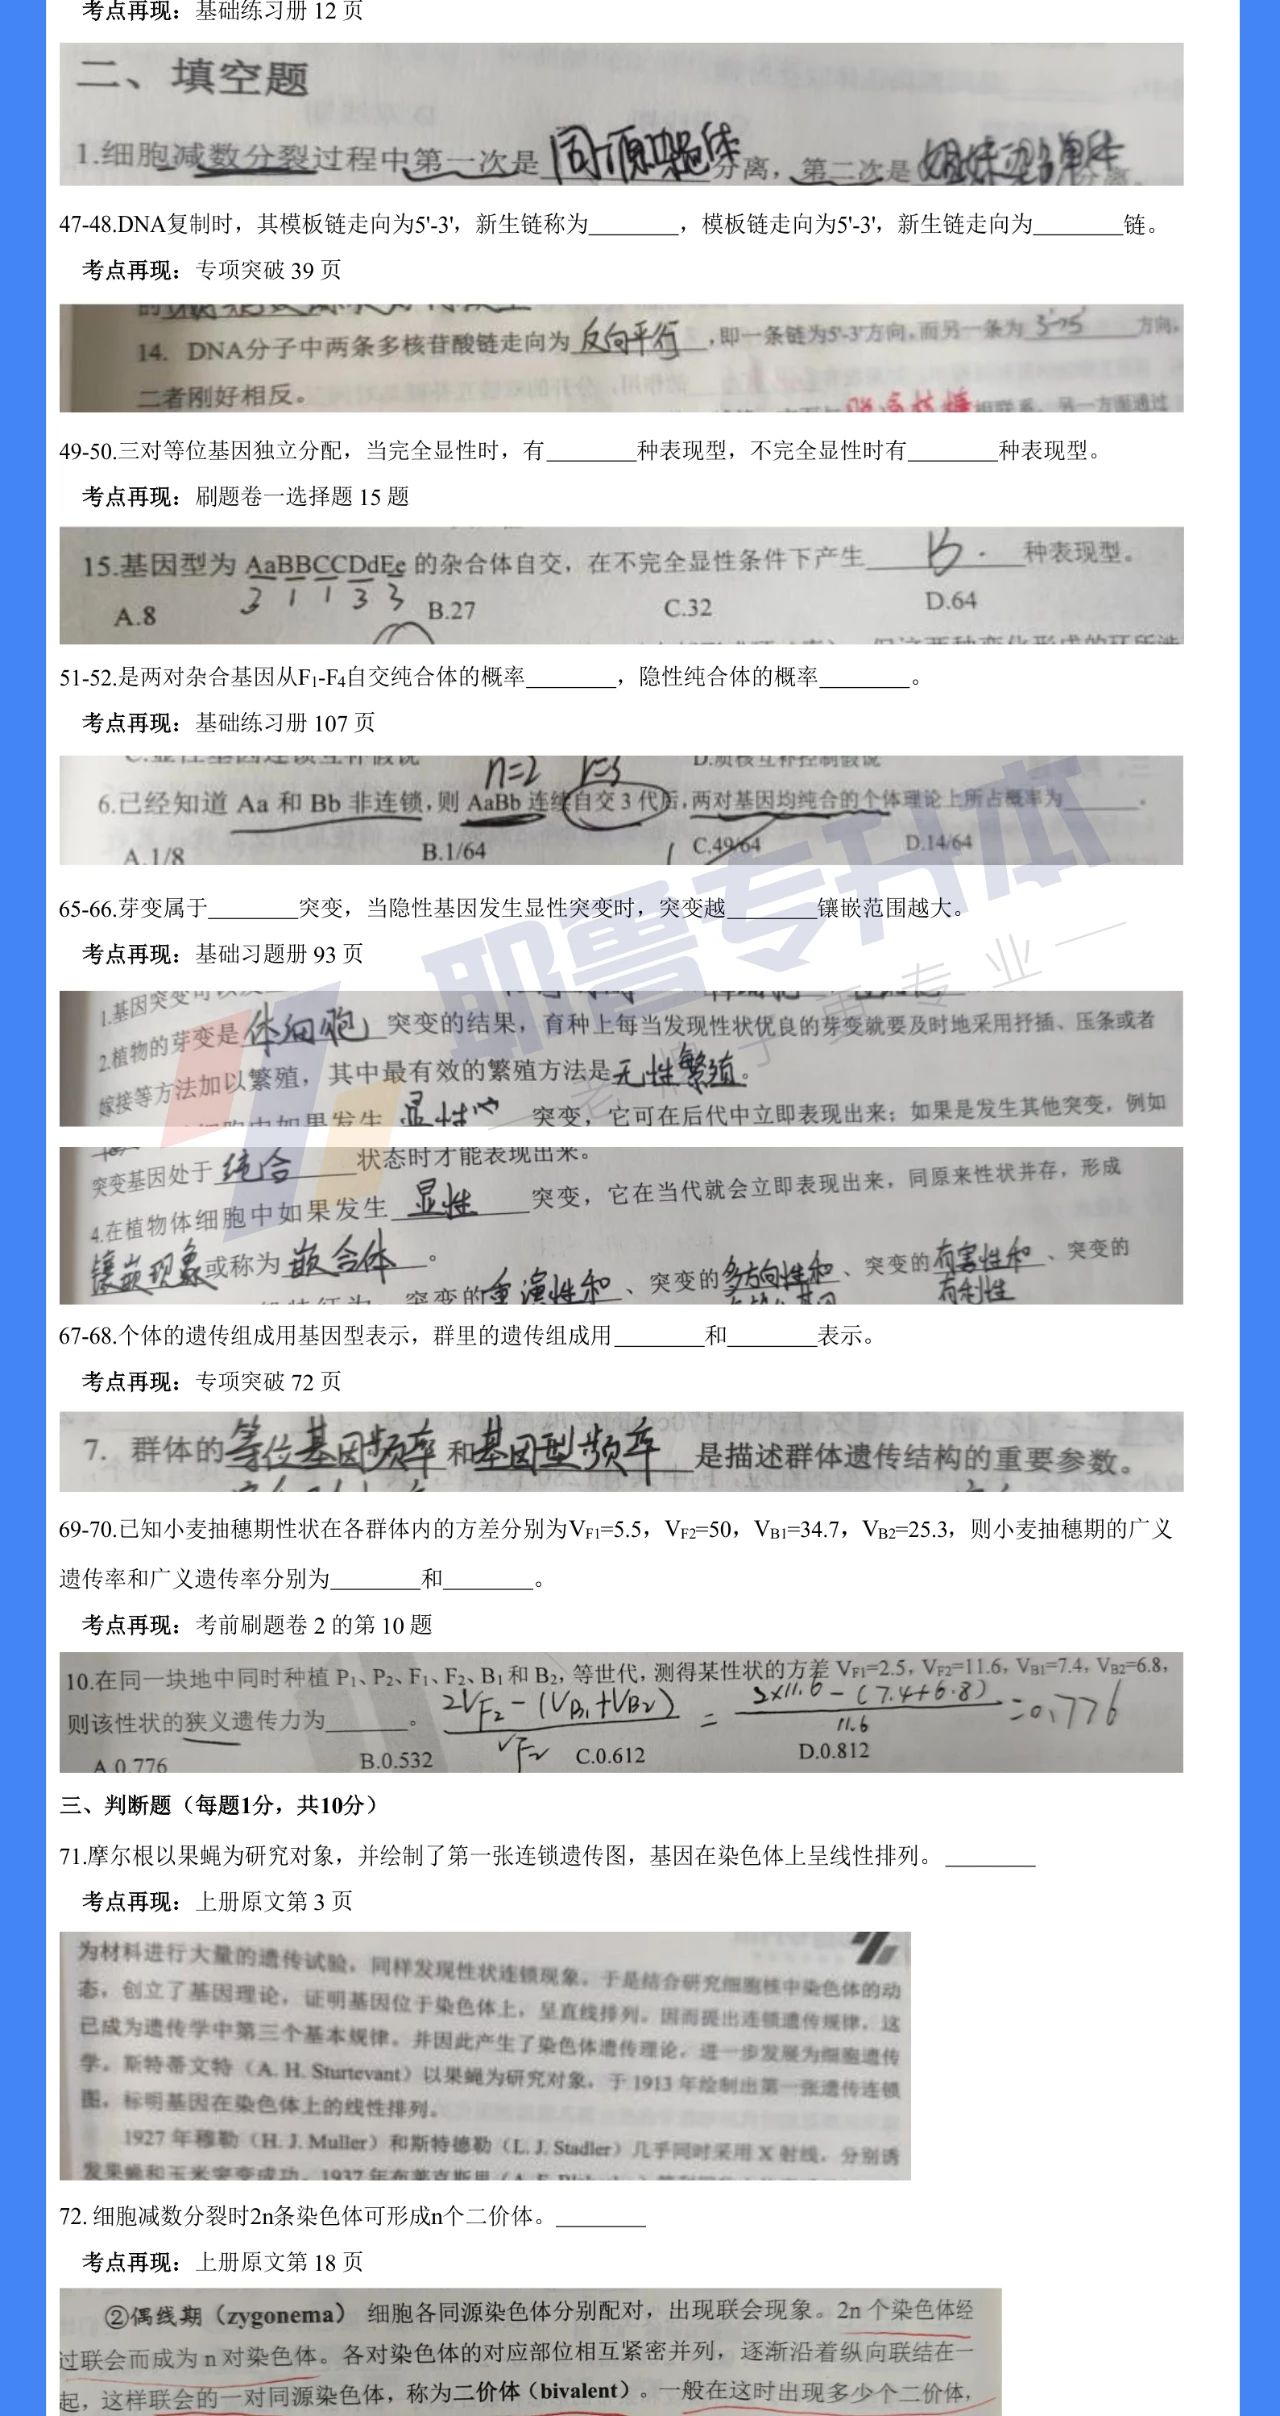 考点再现：基础练习册 12 页
二、填空题
1.细胞减数分裂过程中第一次是同源染色体分离，第二次是姐妹染色单体分离.
47-48.DNA复制时，其模板链走向为5'-3'，新生链称为________，模板链走向为5'-3'，新生链走向为________链。
考点再现：专项突破 39 页
14. DNA分子中两条多核苷酸链走向为 反向平行 ,即一条链为5'-3'方向,而另一条为 3'→5' 方向,
二者刚好相反。
相联系，另一方面通过
49-50.三对等位基因独立分配，当完全显性时，有________种表现型，不完全显性时有________种表现型。
考点再现：刷题卷一选择题 15 题
15.基因型为 AaBBCCDdEe 的杂合体自交，在不完全显性条件下产生 B. 种表现型。
3 1 1 3 3
A.8 B.27 C.32 D.64
51-52.是两对杂合基因从F₁-F₄自交纯合体的概率________，隐性纯合体的概率________。
考点再现：基础练习册 107 页
n=2 r=3 D.质核互补控制假说
6.已经知道 Aa 和 Bb 非连锁,则 AaBb 连续自交 3 代后,两对基因均纯合的个体理论上所占概率为________。
A.1/8 B.1/64 C.49/64 D.14/64
耶鲁专升本
65-66.芽变属于________突变，当隐性基因发生显性突变时，突变越________镶嵌范围越大。
考点再现：基础习题册 93 页
1.基因突变可以发
2.植物的芽变是 体细胞 突变的结果，育种上每当发现性状优良的芽变就要及时地采用扦插、压条或者
嫁接等方法加以繁殖，其中最有效的繁殖方法是无性繁殖。
细胞中如果发生 显性 突变，它可在后代中立即表现出来；如果是发生其他突变，例如
突变基因处于 纯合 状态时才能表现出来。
4.在植物体细胞中如果发生 显性 突变，它在当代就会立即表现出来，同原来性状并存，形成
镶嵌现象或称为 嵌合体 。
突变的重演性和 、突变的多方向性和 、突变的有害性和 、突变的
有利性
67-68.个体的遗传组成用基因型表示，群里的遗传组成用________和________表示。
考点再现：专项突破 72 页
7. 群体的等位基因频率和基因型频率 是描述群体遗传结构的重要参数。
69-70.已知小麦抽穗期性状在各群体内的方差分别为V_F1=5.5，V_F2=50，V_B1=34.7，V_B2=25.3，则小麦抽穗期的广义
遗传率和广义遗传率分别为________和________。
考点再现：考前刷题卷 2 的第 10 题
10.在同一块地中同时种植 P₁、P₂、F₁、F₂、B₁ 和 B₂, 等世代, 测得某性状的方差 V_F1=2.5, V_F2=11.6, V_B1=7.4, V_B2=6.8,
则该性状的狭义遗传力为________。 2V_F2-(V_B1+V_B2) / V_F2 = 2×11.6-(7.4+6.8) / 11.6 =0.776
A.0.776 B.0.532 C.0.612 D.0.812
三、判断题（每题1分，共10分）
71.摩尔根以果蝇为研究对象，并绘制了第一张连锁遗传图，基因在染色体上呈线性排列。________
考点再现：上册原文第 3 页
为材料进行大量的遗传试验，同样发现性状连锁现象。于是结合研究细胞核中染色体的动
态，创立了基因理论，证明基因位于染色体上，呈直线排列，因而提出连锁遗传规律。这
已成为遗传学中第三个基本规律。并因此产生了染色体遗传理论，进一步发展为细胞遗传
学。斯特蒂文特（A. H. Sturtevant）以果蝇为研究对象，于 1913 年绘制出第一张遗传连锁
图，标明基因在染色体上的线性排列。
1927 年穆勒（H. J. Muller）和斯特德勒（L. J. Stadler）几乎同时采用 X 射线，分别诱
发果蝇和玉米突变成功。1937 年布莱克斯里
72. 细胞减数分裂时2n条染色体可形成n个二价体。________
考点再现：上册原文第 18 页
②偶线期（zygonema） 细胞各同源染色体分别配对，出现联会现象。2n 个染色体经
过联会而成为 n 对染色体。各对染色体的对应部位相互紧密并列，逐渐沿着纵向联结在一
起，这样联会的一对同源染色体，称为二价体（bivalent）。一般在这时出现多少个二价体，